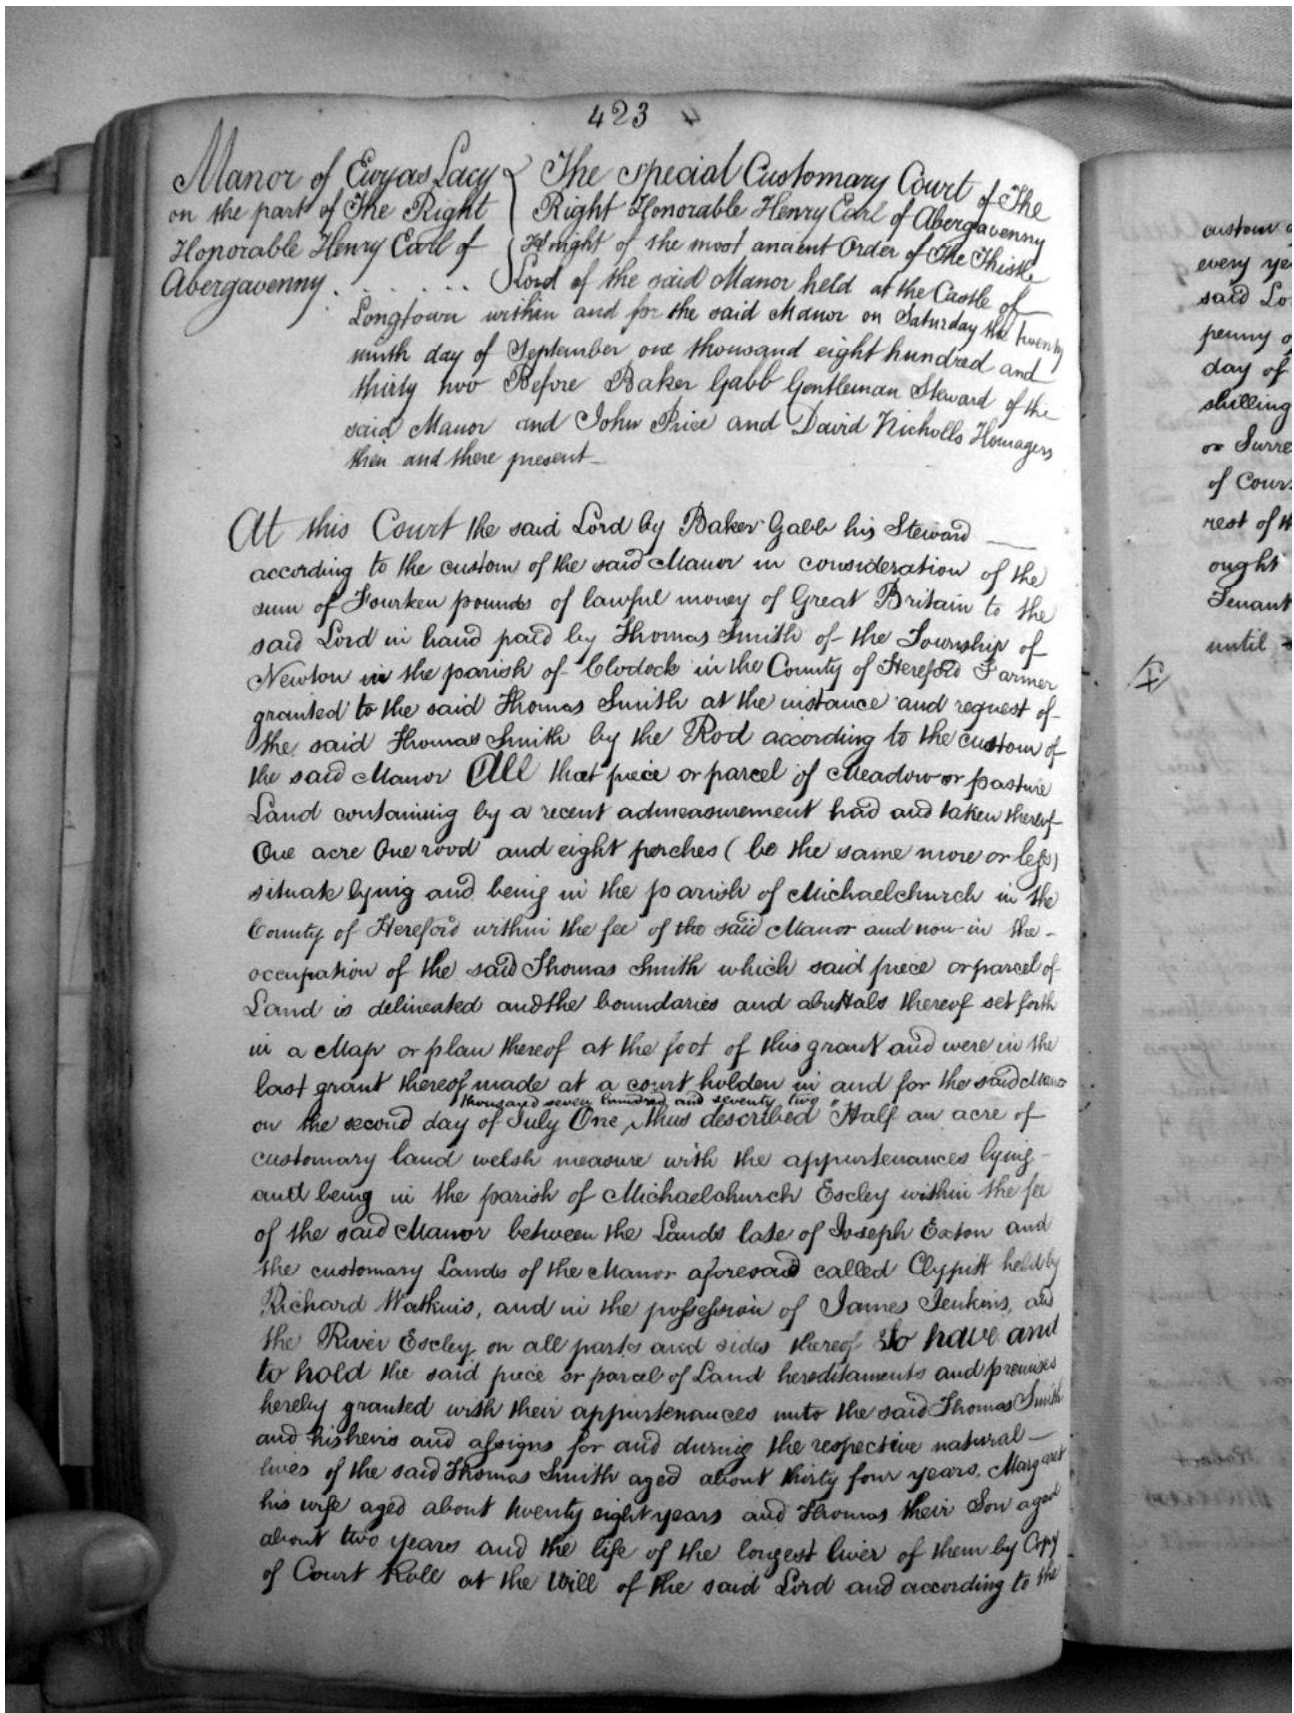 423
Manor of Ewyas Lacy
on the part of The Right
Honorable Henry Earl of
Abergavenny . . . . . . .
The special Customary Court of The
Right Honorable Henry Earl of Abergavenny
Knight of the most ancient Order of The Thistle
Lord of the said Manor held at the Castle of
Longtown within and for the said Manor on Saturday the twenty
ninth day of September one thousand eight hundred and
thirty two Before Baker Gabb Gentleman Steward of the
said Manor and John Price and David Nicholls Homagers
then and there present
At this Court the said Lord by Baker Gabb his Steward
according to the custom of the said Manor in consideration of the
sum of Fourteen pounds of lawful money of Great Britain to the
said Lord in hand paid by Thomas Smith of the Township of
Newton in the parish of Clodock in the County of Hereford Farmer
granted to the said Thomas Smith at the instance and request of
the said Thomas Smith by the Rod according to the custom of
the said Manor All that piece or parcel of Meadow or pasture
Land containing by a recent admeasurement had and taken thereof
One acre One rood and eight perches (be the same more or less)
situate lying and being in the parish of Michaelchurch in the
County of Hereford within the fee of the said Manor and now in the
occupation of the said Thomas Smith which said piece or parcel of
Land is delineated and the boundaries and abuttals thereof set forth
in a Map or plan thereof at the foot of this grant and were in the
last grant thereof made at a court holden in and for the said Manor
thousand seven hundred and seventy two
on the second day of July One thus described "Half an acre of
customary land welsh measure with the appurtenances lying
and being in the parish of Michaelchurch Escley within the fee
of the said Manor between the Lands late of Joseph Exton and
the customary Lands of the Manor aforesaid called Clypitt held by
Richard Watkins, and in the possession of James Jenkins, and
the River Escley on all parts and sides thereof To have and
to hold the said piece or parcel of Land hereditaments and premises
hereby granted with their appurtenances unto the said Thomas Smith
and his heirs and assigns for and during the respective natural
lives of the said Thomas Smith aged about thirty four years, Margaret
his wife aged about twenty eight years and Thomas their Son aged
about two years and the life of the longest liver of them by Copy
of Court Roll at the Will of the said Lord and according to the
custom
every
said
penny
day of
shilling
or
of
rest of
ought
Tenant
until